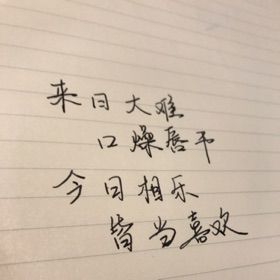 来日大难
口燥唇干
今日相乐
皆当喜欢